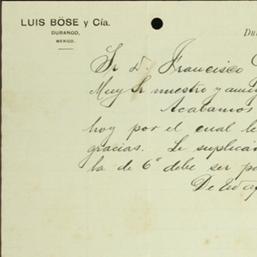 LUIS BÖSE y Cía.
DURANGO,
MEXICO.
Du
Sr D. Francisco
Muy Sr nuestro y amig
Acabamos
hoy por el cual le
gracias. Le suplicam
la de 6° debe ser po
De Ud